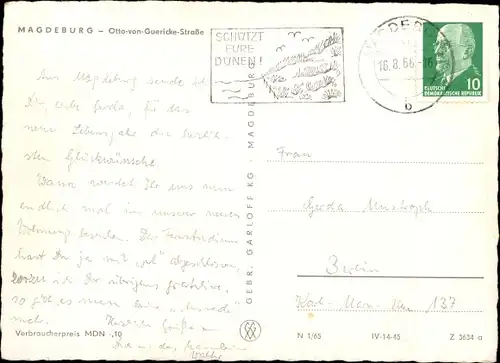 MAGDEBURG – Otto-von-Guericke-Straße
SCHÜTZT
EURE
DÜNEN!
16.8.66-16
b
10
DEUTSCHE
DEMOKRATISCHE REPUBLIK
Aus Magdeburg sende ich
Dir, liebe Gerda, für das
neue Lebensjahr die herzlich-
sten Glückwünsche.
Wann werdet Ihr uns nun
endlich mal in unserer neuen
Wohnung besuchen. Das Fernstudium
hast Du ja mit abgeschlossen,
ich Dir übrigens gratuliere,
so gibt es nun keine
mehr. Herzliche Grüße
Frau
Gerda
Berlin
Karl-Marx-Allee 137
GEBR. GARLOFF KG · MAGDEBURG
Verbraucherpreis MDN -,10
N 1/65 IV-14-45 Z 3634 a